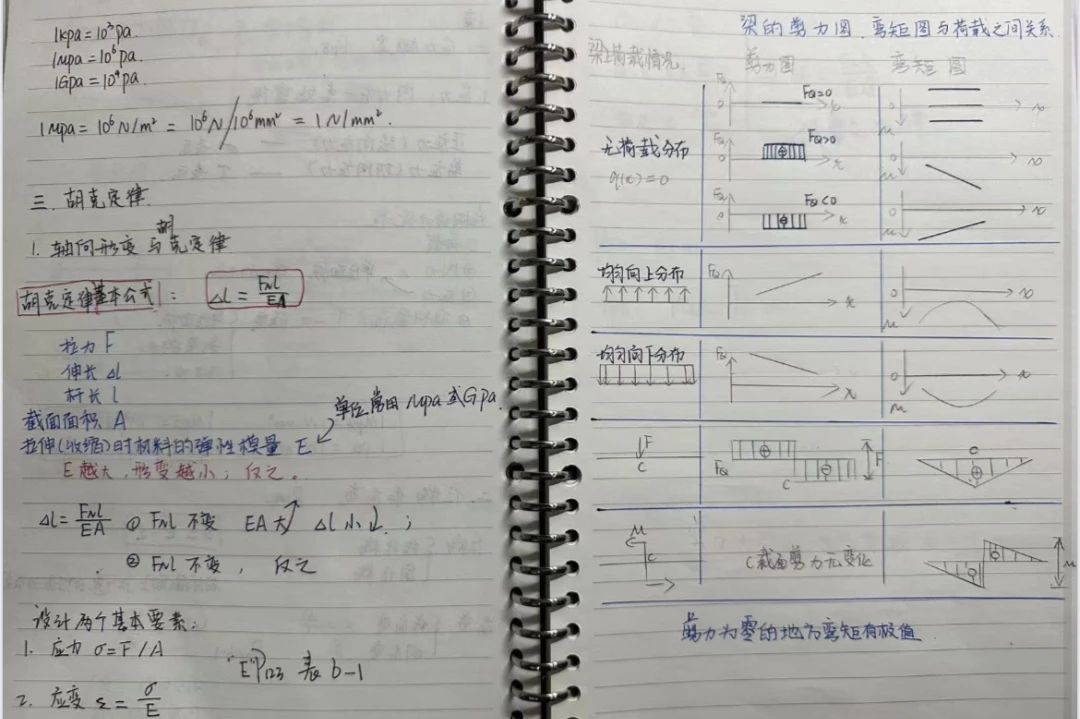 1kpa = 10³pa.
1Mpa = 10⁶pa.
1Gpa = 10⁹pa.
1Mpa = 10⁶N/m² = 10⁶N/10⁶mm² = 1N/mm².
三. 胡克定律
1. 轴向形变与胡克定律
胡克定律基本公式: Δl = FNl/EA
拉力 F
伸长 Δl
杆长 l
截面面积 A
单位常用 Mpa 或 Gpa.
拉伸(收缩)时材料的弹性模量 E
E越大,形变越小;反之。
Δl = FNl/EA ① FNl 不变 EA大↗ Δl 小↓;
② FNl 不变, 反之
设计两个基本要素:
1. 应力 σ=F/A
"E"P123 表 6-1
2. 应变 ε = σ/E
梁的剪力图、弯矩图与荷载之间关系.
梁上荷载情况 剪力图 弯矩图
无荷载分布
q(x)=0
FQ 0 FQ=0 x
0 M x
FQ 0 FQ>0 x
0 M x
FQ 0 FQ<0 x
0 M x
均匀向上分布
FQ x
0 M x
均匀向下分布
FQ x
0 M x
F C
FQ ⊕ ⊖ C F
C ⊕
M C
C截面剪力无变化
M
剪力为零的地方弯矩有极值